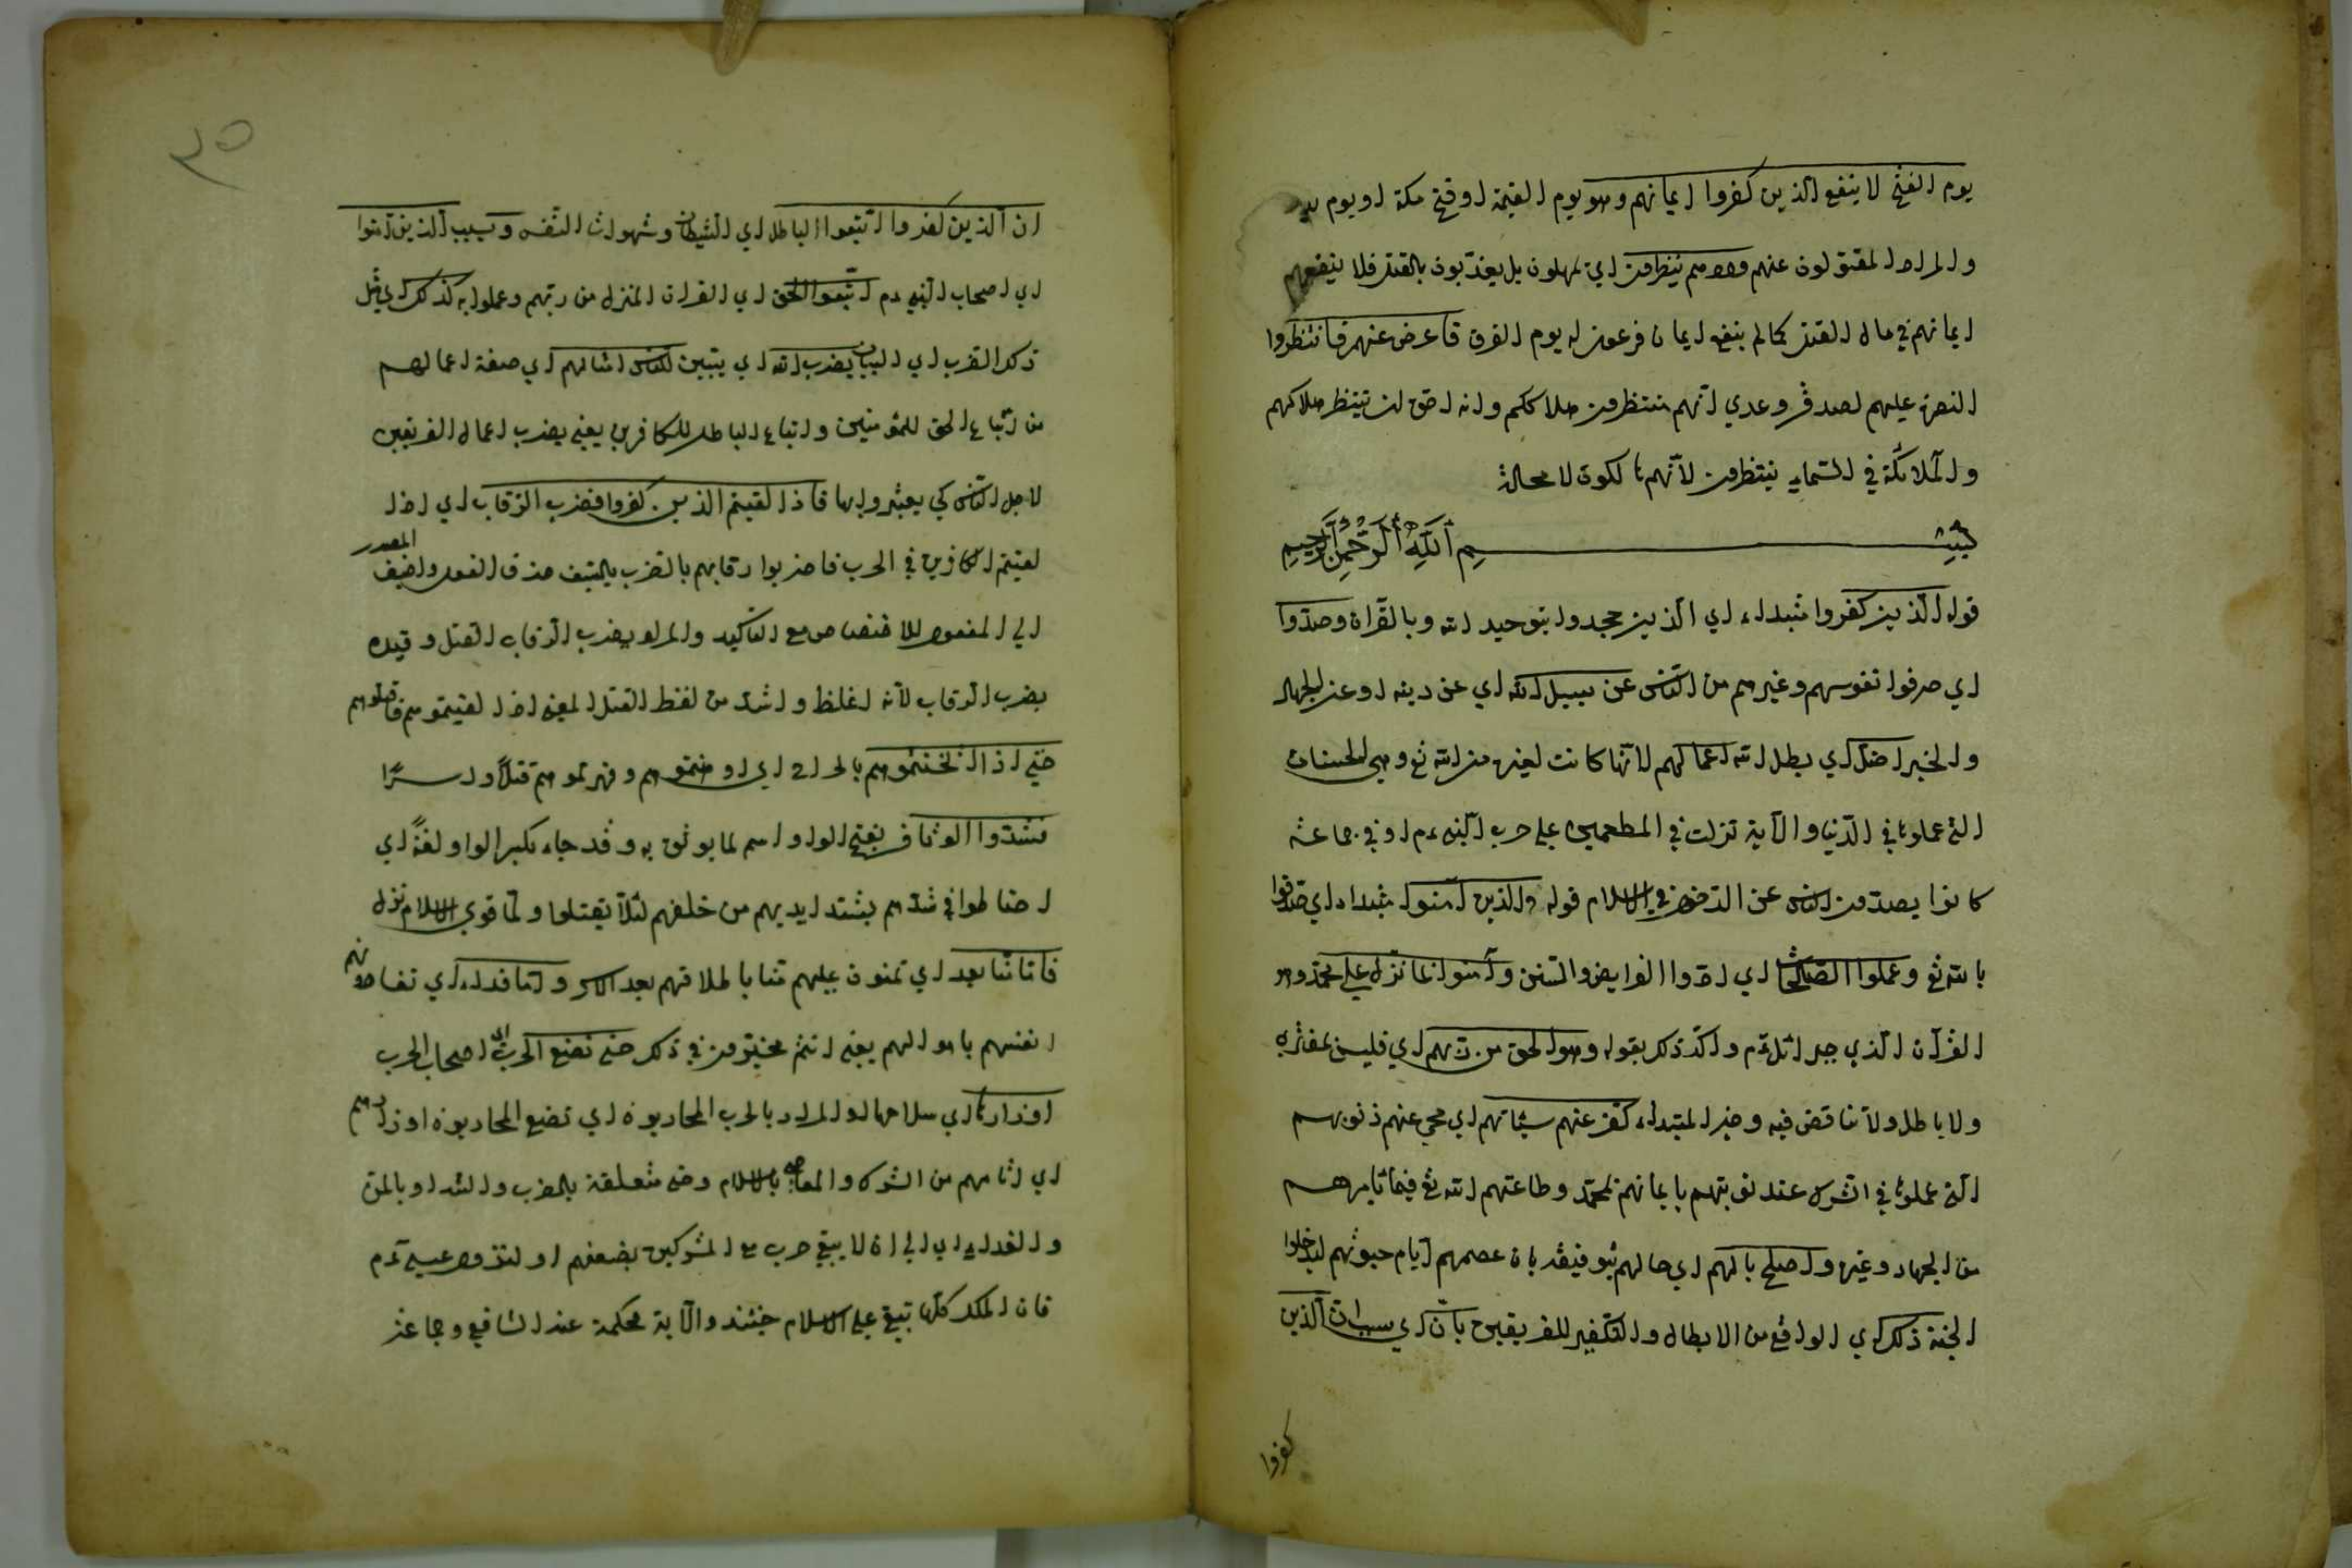 يوم الفتح لا ينفع الذين كفروا ايمانهم وهو يوم القيمة او فتح مكة او يوم بدر
والمراد المقتولون عنهم ولا هم ينظرون اي يمهلون بل يعذبون بالقتل فلا ينفعهم
ايمانهم في حال القتل كما لم ينفع ايمان فرعون له يوم الغرق فاعرض عنهم فانتظروا
النصرة عليهم لصدق وعدي انهم منتظرون هلاككم وانه احق ان ينتظر هلاكهم
والملائكة في السماء ينتظرون لانهم هالكون لا محالة
بسم الله الرحمن الرحيم
قوله الذين كفروا مبتداء اي الذين جحدوا بتوحيد الله وبالقرآن وصدوا
اي صرفوا نفوسهم وغيرهم من الناس عن سبيل الله اي عن دينه او عن الجهاد
والخبر اضل اي يبطل الله اعمالهم لانها كانت لغير من الله تع وهي الحسنات
التي عملوها في الدنيا والآية نزلت في المطعمين على حرب النبي ءم او في جماعة
كانوا يصدون الناس عن الدخول في الاسلام قوله والذين آمنوا مبتداء اي صدقوا
بالله تع وعملوا الصالحات اي ادوا الفرايض والسنن وآمنوا بما نزل على محمد وهو
القرآن الذي جبرائل ءم واكد ذلك بقوله وهو الحق من ربهم اي فليس بمفتري
ولا باطل ولا تناقض فيه وخبر المبتداء كفر عنهم سيئاتهم اي محي عنهم ذنوبهم
التي عملوها في الشرك عند توبتهم بايمانهم بمحمد وطاعتهم الله تع فيما يامرهم
من الجهاد وغيره واصلح بالهم اي حالهم بتوفيقه بان عصمهم ايام حيوتهم ليدخلوا
الجنة ذلك اي الواقع من الابطال والتكفير للفريقين بان اي بسبب ان الذين
كفروا
٣٥
ان الذين كفروا اتبعوا الباطل اي الشيطان وشهوات النفس وبسبب الذين آمنوا
اي اصحاب النبي ءم اتبعوا الحق اي القرآن المنزل من ربهم وعملوا به كذلك اي مثل
ذلك الضرب اي البيان يضرب الله اي يبين للناس امثالهم اي صفة اعمالهم
من اتباع الحق للمؤمنين واتباع الباطل للكافرين يعني يضرب اعمال الفريقين
لاجل الناس كي يعتبروا بها فاذا لقيتم الذين كفروا فضرب الرقاب اي اذا
لقيتم الكافرين في الحرب فاضربوا رقابهم بالضرب بالسيف حذف الفعل واضيف المصدر
الى المفعول للاختصاص مع التاكيد والمراد بضرب الرقاب القتل وقيده
بضرب الرقاب لانه اغلظ واشد من لفظ القتل المعنى اذا لقيتموهم فاقتلوهم
حتى اذا اثخنتموهم بالجراح اي اوهنتموهم وقهرتموهم قتلا واسرا
فشدوا الوثاق بفتح الواو اسم لما يوثق به وقد جاء بكسر الواو لغة اي
احتاطوا في شدهم بشد ايديهم من خلفهم لئلا يقتلوا ولما قوي الاسلام نزل
فاما منا بعد اي تمنون عليهم منا باطلاقهم بعد الاسر واما فداء اي تفادونهم
انفسهم باموالهم يعني انتم مخيرون في ذلك حتى تضع الحرب اي اصحاب الحرب
اوزارها اي سلاحها والمراد بالحرب المحاربون اي تضع المحاربون اوزارهم
اي آثامهم من الشرك والمعاصي بالاسلام وحتى متعلقة بالضرب والشد او بالمن
والفداء اي الى ان لا يبقى حرب مع المشركين بضعفهم او لنزول عيسى ءم
فان الملل كلها تبقى على الاسلام حينئذ والآية محكمة عند الشافعي وجماعة